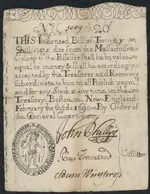 No (                ) 20ˢ
THIS Indented Bill of Twenty
Shillings due from the Massachusets
Colony to the Possessor shall be in value
equal to money & shall be accordingly
accepted by the Treasurer and Receivers
subordinate to him in all Publick paymᵗˢ
and for any Stock at any time in the
Treasury. Boston in New-England
February the third 1690 By Order of
the General Court
Adam Winthrop